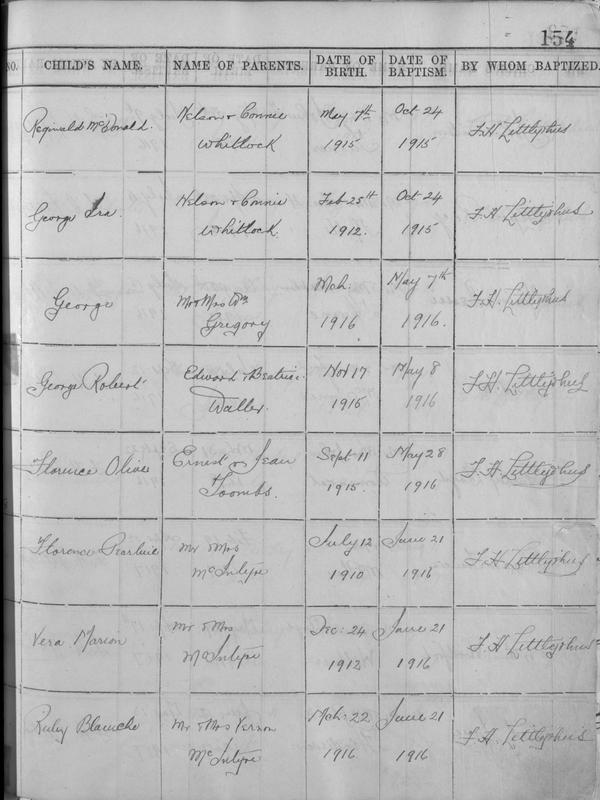 154
NO. CHILD'S NAME. NAME OF PARENTS. DATE OF BIRTH. DATE OF BAPTISM. BY WHOM BAPTIZED.
Reginald McDonald. Nelson & Connie May 7th Oct 24 F.H. Littlejohns
Whitlock 1915 1915
George Ira. Nelson & Connie Feb 25th Oct 24 F.H. Littlejohns
Whitlock. 1912. 1915
George Mr & Mrs Wm Mch. May 7th F.H. Littlejohns
Gregory 1916 1916.
George Robert Edward & Beatrice Nov 17 May 8 F.H. Littlejohns
Waller. 1915 1916
Florence Olive Ernest & Jean Sept 11 May 28 F.H. Littlejohns
Toombs. 1915. 1916
Florence July 12 June 21 F.H. Littlejohns
Mr & Mrs
McIntyre 1910 1916
Vera Marion Mr & Mrs Dec: 24 June 21 F.H. Littlejohns
McIntyre 1912 1916
Ruby Blanche Mr & Mrs Vernon Mch: 22 June 21 F.H. Littlejohns
McIntyre 1916 1916